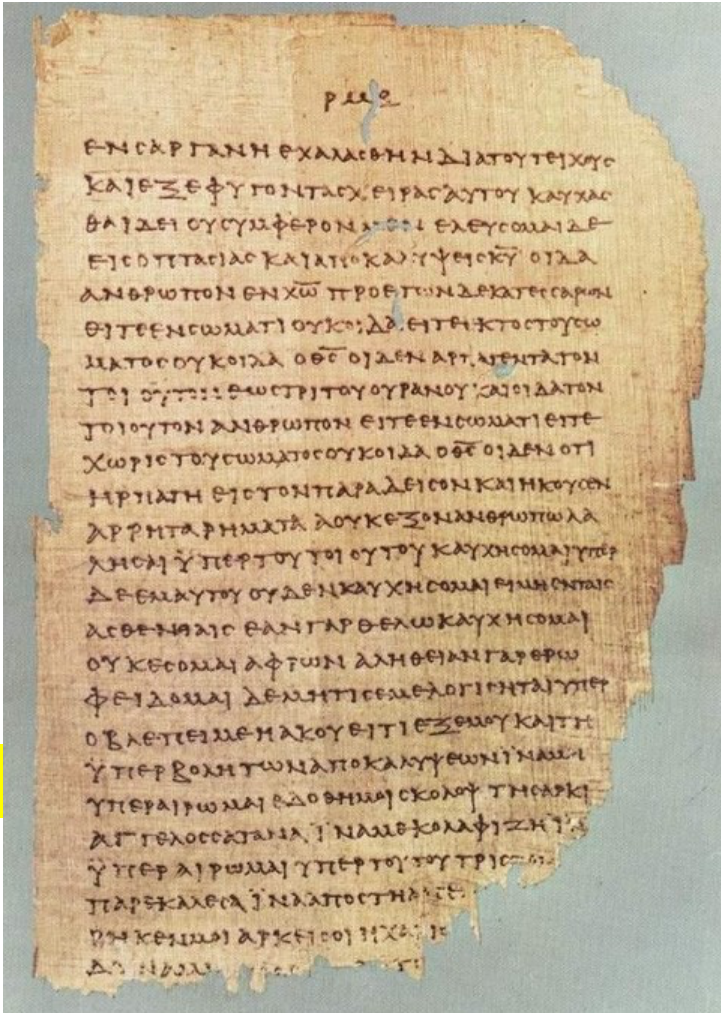 ΕΝϹΑΡΓΑΝΗ ΕΧΑΛΑϹΘΗΝ ΔΙΑΤΟΥΤΕΙΧΟΥϹ
ΚΑΙΕΞΕΦΥΓΟΝΤΑϹΧΕΙΡΑϹΑΥΤΟΥ ΚΑΥΧΑϹ
ΘΑΙΔΕΙ ΟΥϹΥΜΦΕΡΟΝ ΕΛΕΥϹΟΜΑΙΔΕ
ΕΙϹΟΠΤΑϹΙΑϹ ΚΑΙΑΠΟΚΑΛΥΨΕΙϹΚ̅Υ̅ ΟΙΔΑ
ΑΝΘΡΩΠΟΝ ΕΝΧ̅Ω̅ ΠΡΟΕΤΩΝΔΕΚΑΤΕϹϹΑΡΩΝ
ΕΙΤΕΕΝϹΩΜΑΤΙ ΟΥΚΟΙΔΑ ΕΙΤΕΕΚΤΟϹΤΟΥϹΩ
ΜΑΤΟϹΟΥΚΟΙΔΑ ΟΘ̅Ϲ̅ ΟΙΔΕΝ ΑΡΠΑΓΕΝΤΑΤΟΝ
ΤΟΙΟΥΤΟΝΕΩϹΤΡΙΤΟΥΟΥΡΑΝΟΥ ΚΑΙΟΙΔΑΤΟΝ
ΤΟΙΟΥΤΟΝ ΑΝΘΡΩΠΟΝ ΕΙΤΕΕΝϹΩΜΑΤΙ ΕΙΤΕ
ΧΩΡΙϹΤΟΥϹΩΜΑΤΟϹΟΥΚΟΙΔΑ ΟΘ̅Ϲ̅ ΟΙΔΕΝ ΟΤΙ
ΗΡΠΑΓΗ ΕΙϹΤΟΝΠΑΡΑΔΕΙϹΟΝ ΚΑΙΗΚΟΥϹΕΝ
ΑΡΡΗΤΑΡΗΜΑΤΑ ΑΟΥΚΕΞΟΝΑΝΘΡΩΠΩΛΑ
ΛΗϹΑΙ ΫΠΕΡΤΟΥΤΟΙΟΥΤΟΥ ΚΑΥΧΗϹΟΜΑΙΥΠΕΡ
ΔΕΕΜΑΥΤΟΥ ΟΥΔΕΝΚΑΥΧΗϹΟΜΑΙ ΕΙΜΗΕΝΤΑΙϹ
ΑϹΘΕΝΕΙΑΙϹ ΕΑΝΓΑΡΘΕΛΩΚΑΥΧΗϹΟΜΑΙ
ΟΥΚΕϹΟΜΑΙ ΑΦΡΩΝ ΑΛΗΘΕΙΑΝΓΑΡΕΡΩ
ΦΕΙΔΟΜΑΙ ΔΕΜΗΤΙϹΕΜΕΛΟΓΙϹΗΤΑΙΥΠΕΡ
ΟΒΛΕΠΕΙΜΕΗΑΚΟΥΕΙΤΙΕΞΕΜΟΥ ΚΑΙΤΗ
ΫΠΕΡΒΟΛΗΤΩΝΑΠΟΚΑΛΥΨΕΩΝΪΝΑΜΗ
ΥΠΕΡΑΙΡΩΜΑΙ ΕΔΟΘΗΜΟΙϹΚΟΛΟΨ ΤΗϹΑΡΚΙ
ΑΓΓΕΛΟϹϹΑΤΑΝΑ ΪΝΑΜΕΚΟΛΑΦΙΖΗΪΝΑ
ΫΠΕΡΑΙΡΩΜΑΙ ΥΠΕΡΤΟΥΤΟΥΤΡΙϹ
ΠΑΡΕΚΑΛΕϹΑ ΪΝΑΑΠΟϹΤΗ
ΡΗΚΕΝΜΟΙ ΑΡΚΕΙϹΟΙ ΗΧΑΡΙϹ